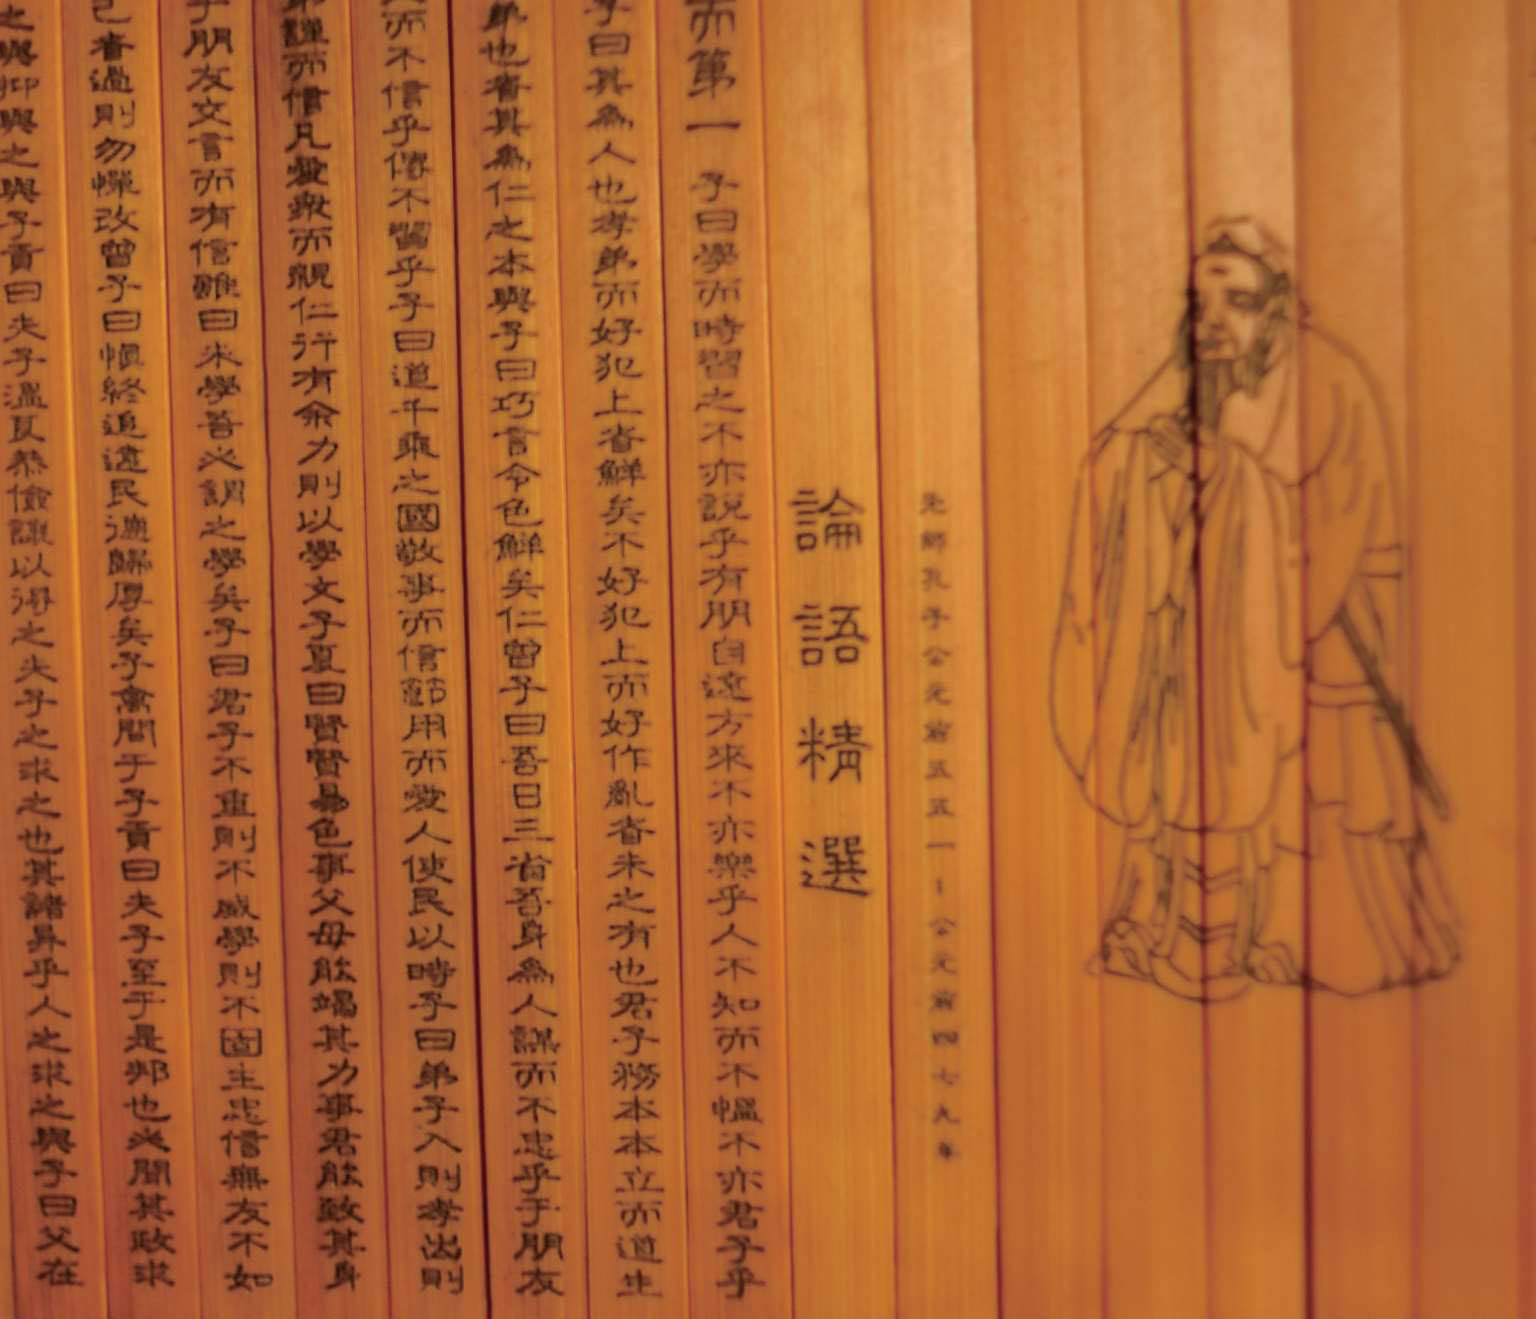 先師孔子公元前五五一-公元前四七九年
論語精選
而第一 子曰學而時習之不亦說乎有朋自遠方來不亦樂乎人不知而不慍不亦君子乎
子曰其為人也孝弟而好犯上者鮮矣不好犯上而好作亂者未之有也君子務本本立而道生
弟也者其為仁之本與子曰巧言令色鮮矣仁曾子曰吾日三省吾身為人謀而不忠乎于朋友
而不信乎傳不習乎子曰道千乘之國敬事而信節用而愛人使民以時子曰弟子入則孝出則
謹而信凡愛眾而親仁行有余力則以學文子夏曰賢賢易色事父母能竭其力事君能致其身
于朋友交言而有信雖曰未學吾必謂之學矣子曰君子不重則不威學則不固主忠信無友不如
己者過則勿憚改曾子曰慎終追遠民德歸厚矣子禽問于子貢曰夫子至于是邦也必聞其政求
之與抑與之與子貢曰夫子溫良恭儉讓以得之夫子之求之也其諸異乎人之求之與子曰父在